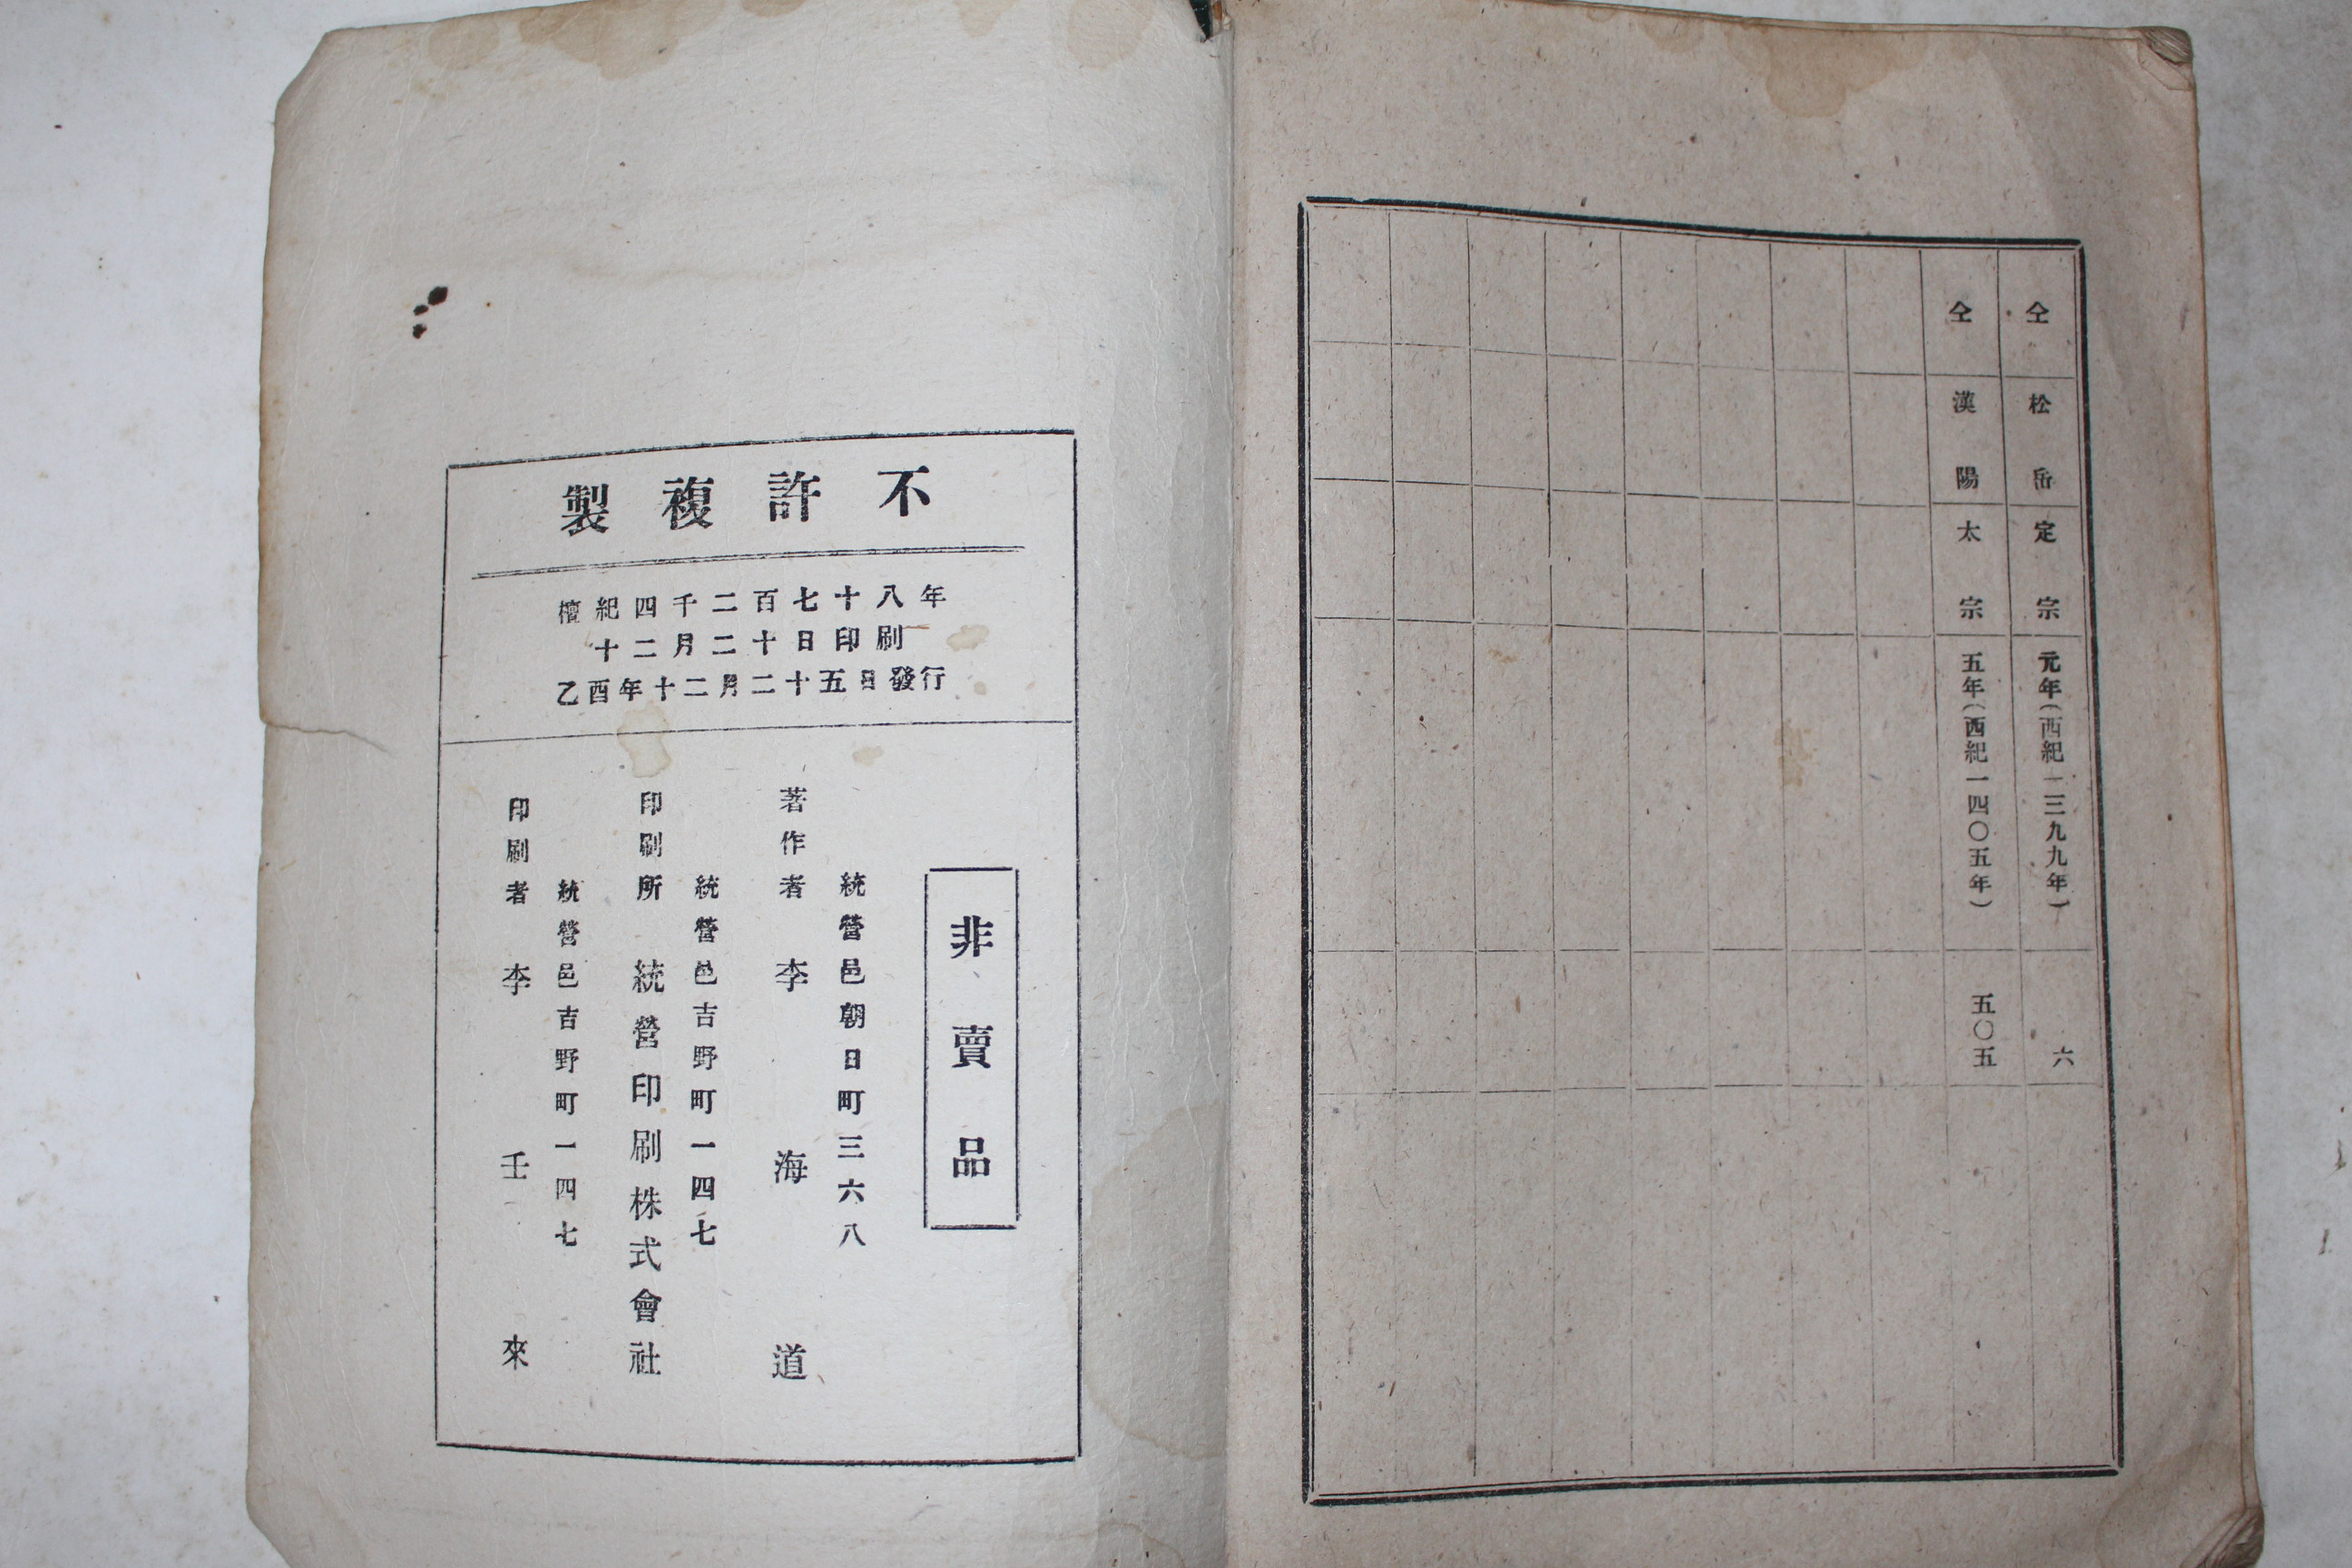 仝 松岳 定宗 元年(西紀一三九九年) 六
仝 漢陽 太宗 五年(西紀一四〇五年) 五〇五
不許複製
檀紀四千二百七十八年
十二月二十日印刷
乙酉年十二月二十五日發行
非賣品
統營邑朝日町三六八
著作者 李海道
統營邑吉野町一四七
印刷所 統營印刷株式會社
統營邑吉野町一四七
印刷者 李壬來